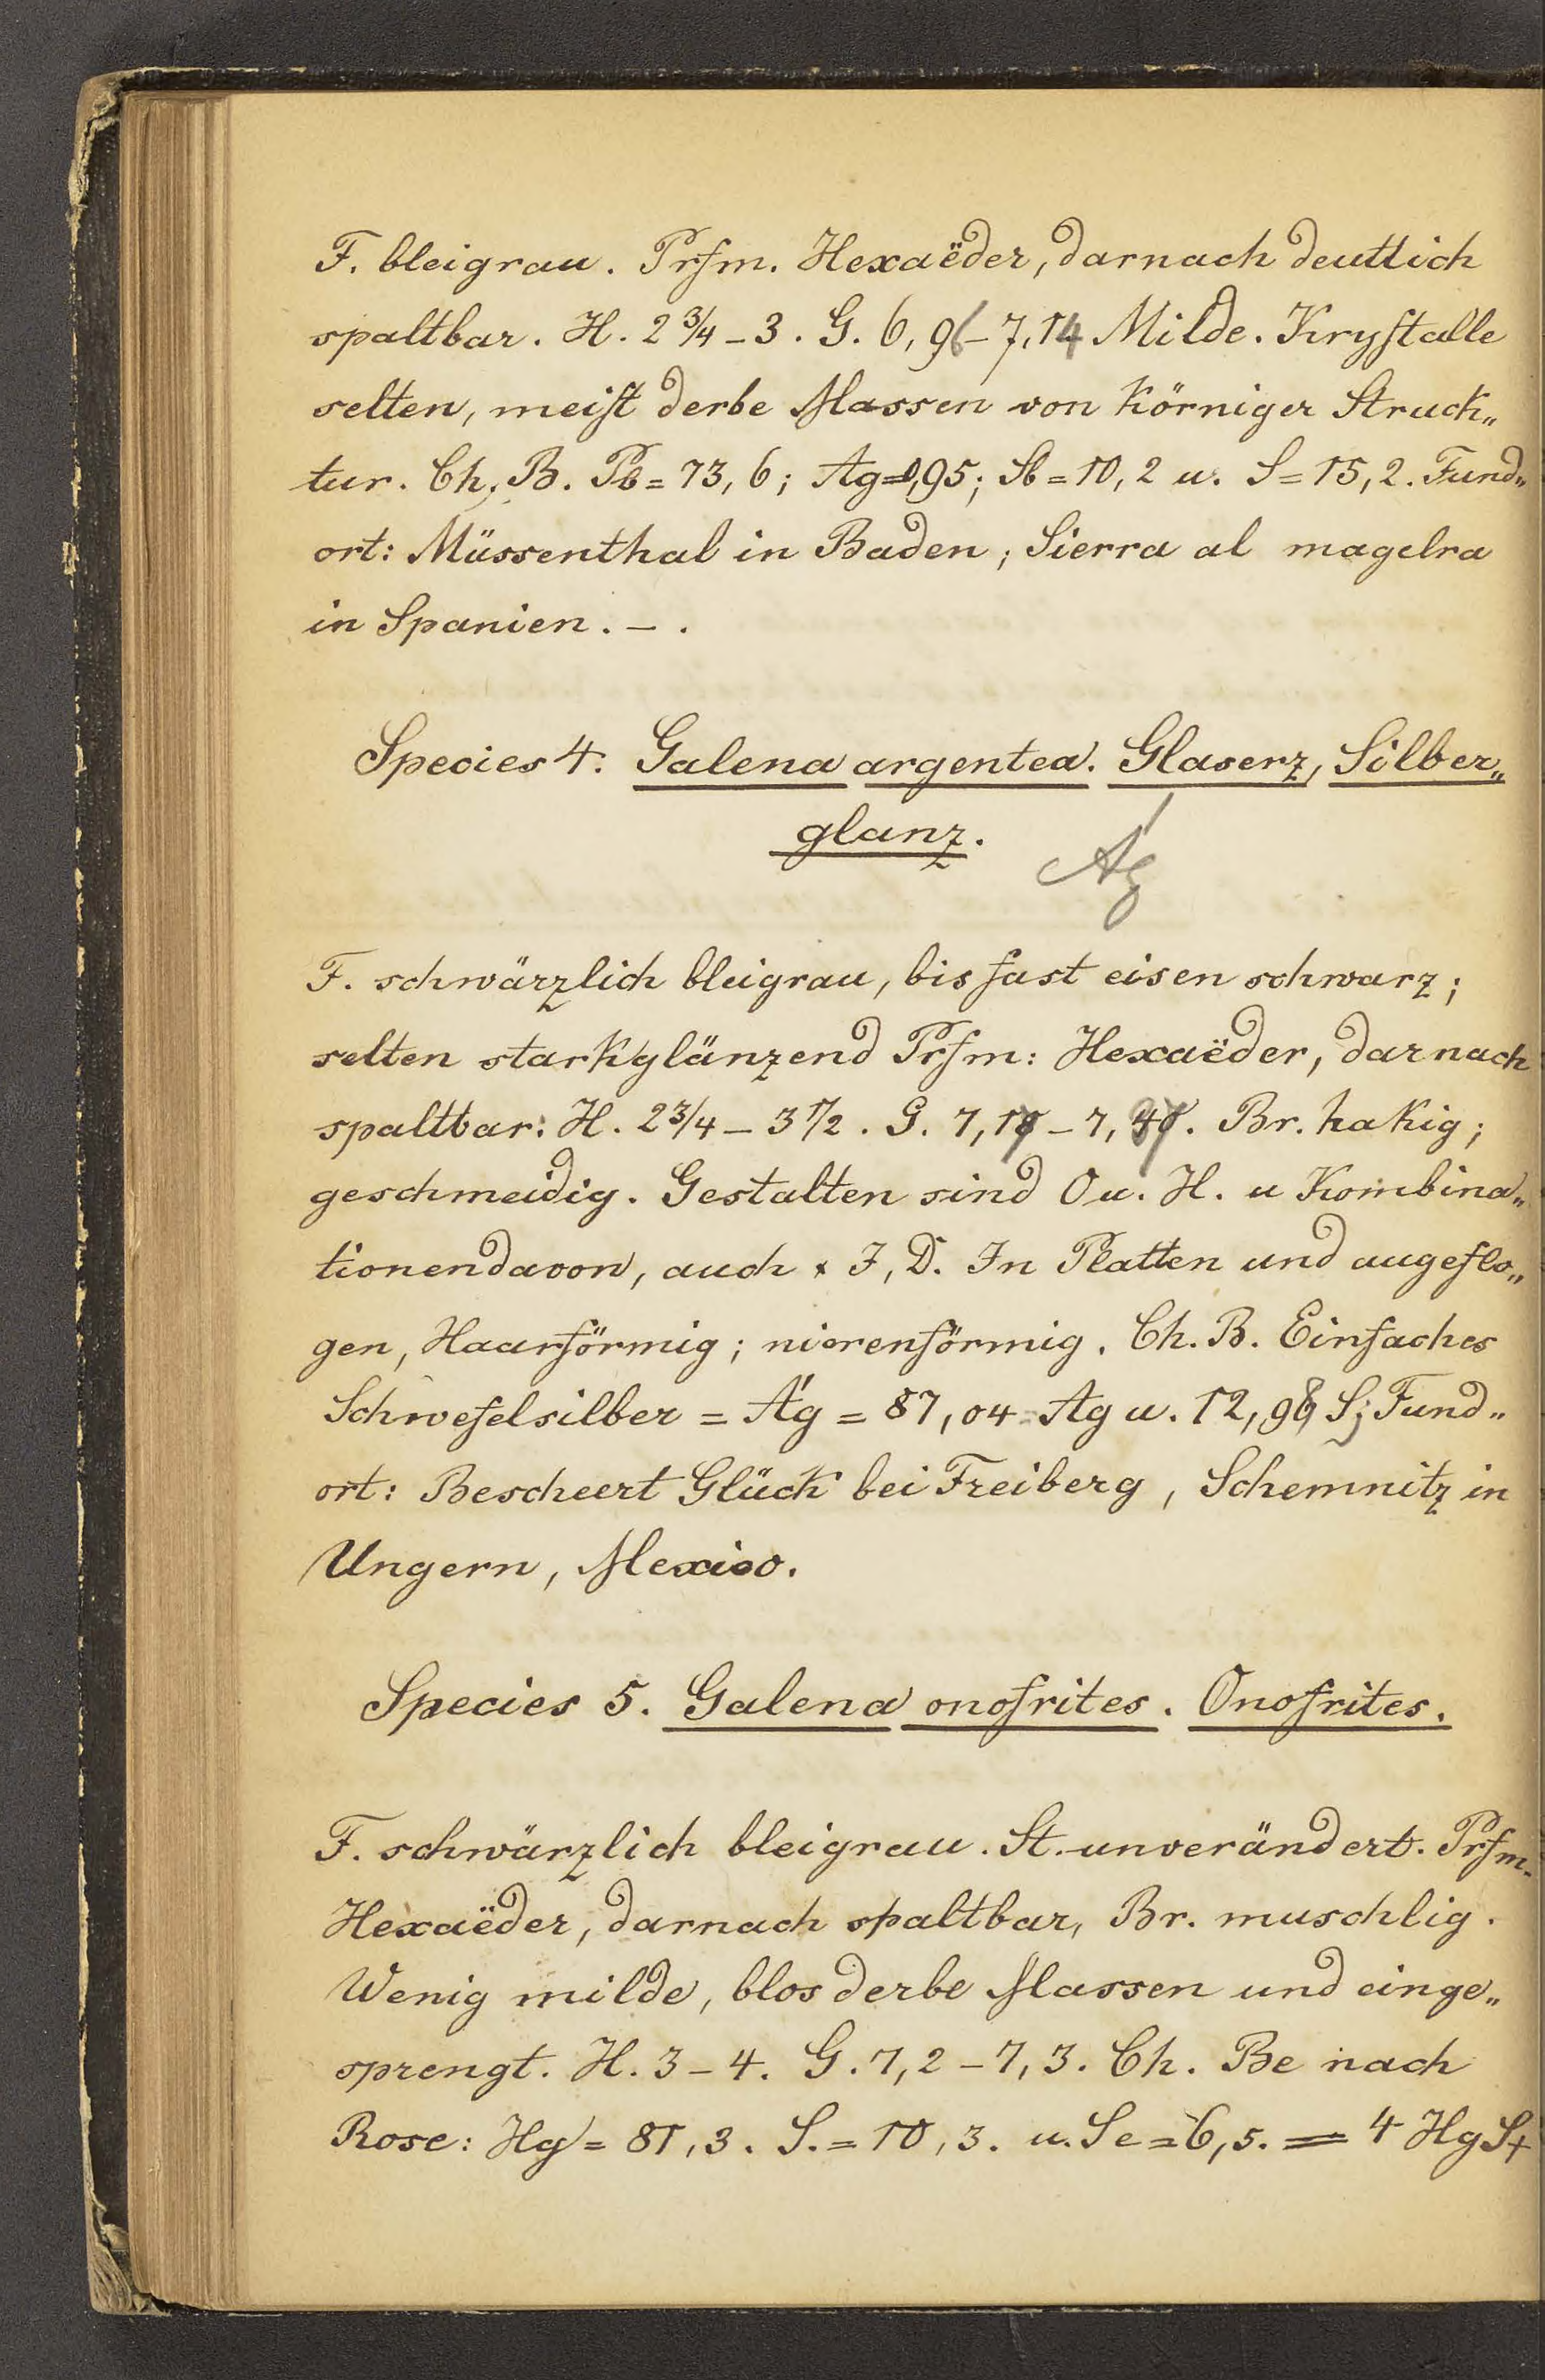 F. bleigrau. Prfm. Hexaëder, darnach deutlich
spaltbar. H. 2 3/4 - 3. G. 6,96 - 7,14 Milde. Krystalle
selten, meist derbe Massen von körniger Struck„
tur. Ch. B. Pb = 73,6; Ag = 0,95; Sb = 10,2 u. S = 15,2. Fund„
ort: Müssenthal in Baden; Sierra al magelra
in Spanien. - .
Species 4. Galena argentea. Glaserz, Silber„
glanz.
A'g
F. schwärzlich bleigrau, bis fast eisen schwarz;
selten starkglänzend Prfm: Hexaëder, darnach
spaltbar: H. 2 3/4 - 3 1/2. G. 7,17 - 7,37. Br. hakig;
geschmeidig. Gestalten sind O u. H. u Kombina„
tionendavon, auch x I, D. In Platten und angeflo„
gen, Haarförmig; nierenförmig. Ch. B. Einfaches
Schwefelsilber = A'g = 87,04 Ag u. 12,96 S; Fund„
ort: Bescheert Glück bei Freiberg, Schemnitz in
Ungern, Mexico.
Species 5. Galena onofrites. Onofrites.
F. schwärzlich bleigrau. St. unverändert. Prfm.
Hexaëder, darnach spaltbar, Br. muschlig.
Wenig milde, blos derbe Massen und einge„
sprengt. H. 3 - 4. G. 7,2 - 7,3. Ch. Be nach
Rose: Hg = 81,3. S. = 10,3. u. Se = 6,5. = 4 HgS+